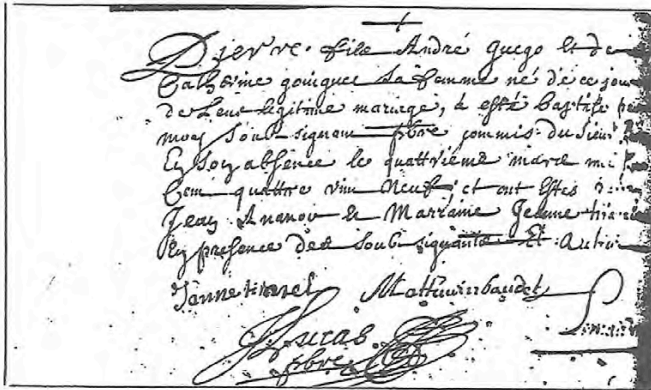 Pierre file André guego et de
Catherine gouigues sa famme né de ce jou
de Leur legitime mariage, a esté baptise pa
moy Soub signant pbre commis du Sieur
En son absence le quattrieme mars mi
Cent quattre vin neuf, et ont estes
Jean Ananou et Marianne Jeanne
En presence des soub signants Et autre
Mathurin baudet
Lucas
pbre